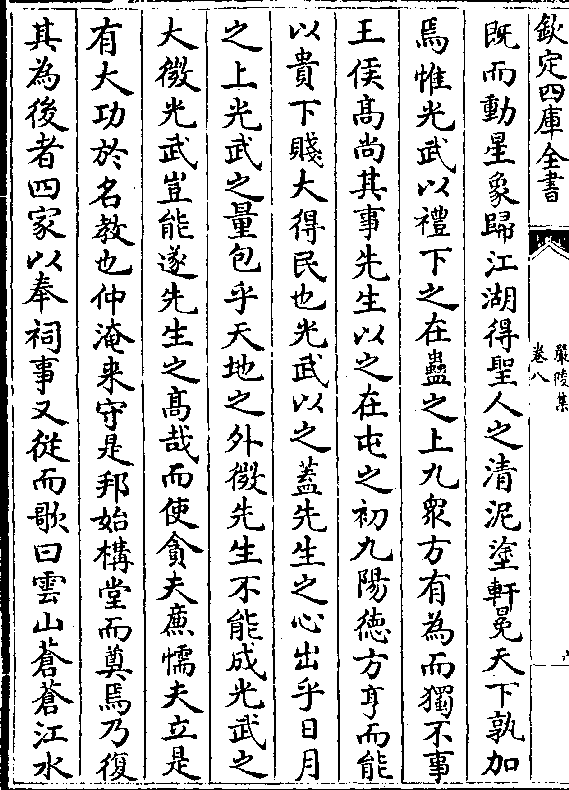 欽定四庫全書
嚴陵集
卷八
六
既而動星象歸江湖得聖人之清泥塗軒冕天下孰加
焉惟光武以禮下之在蠱之上九衆方有為而獨不事
王侯髙尚其事先生以之在屯之初九陽徳方亨而能
以貴下賤大得民也光武以之蓋先生之心出乎日月
之上光武之量包乎天地之外微先生不能成光武之
大微光武豈能遂先生之髙哉而使貪夫㢘懦夫立是
有大功於名教也仲淹来守是邦始構堂而奠焉乃復
其為後者四家以奉祠事又從而歌曰雲山蒼蒼江水